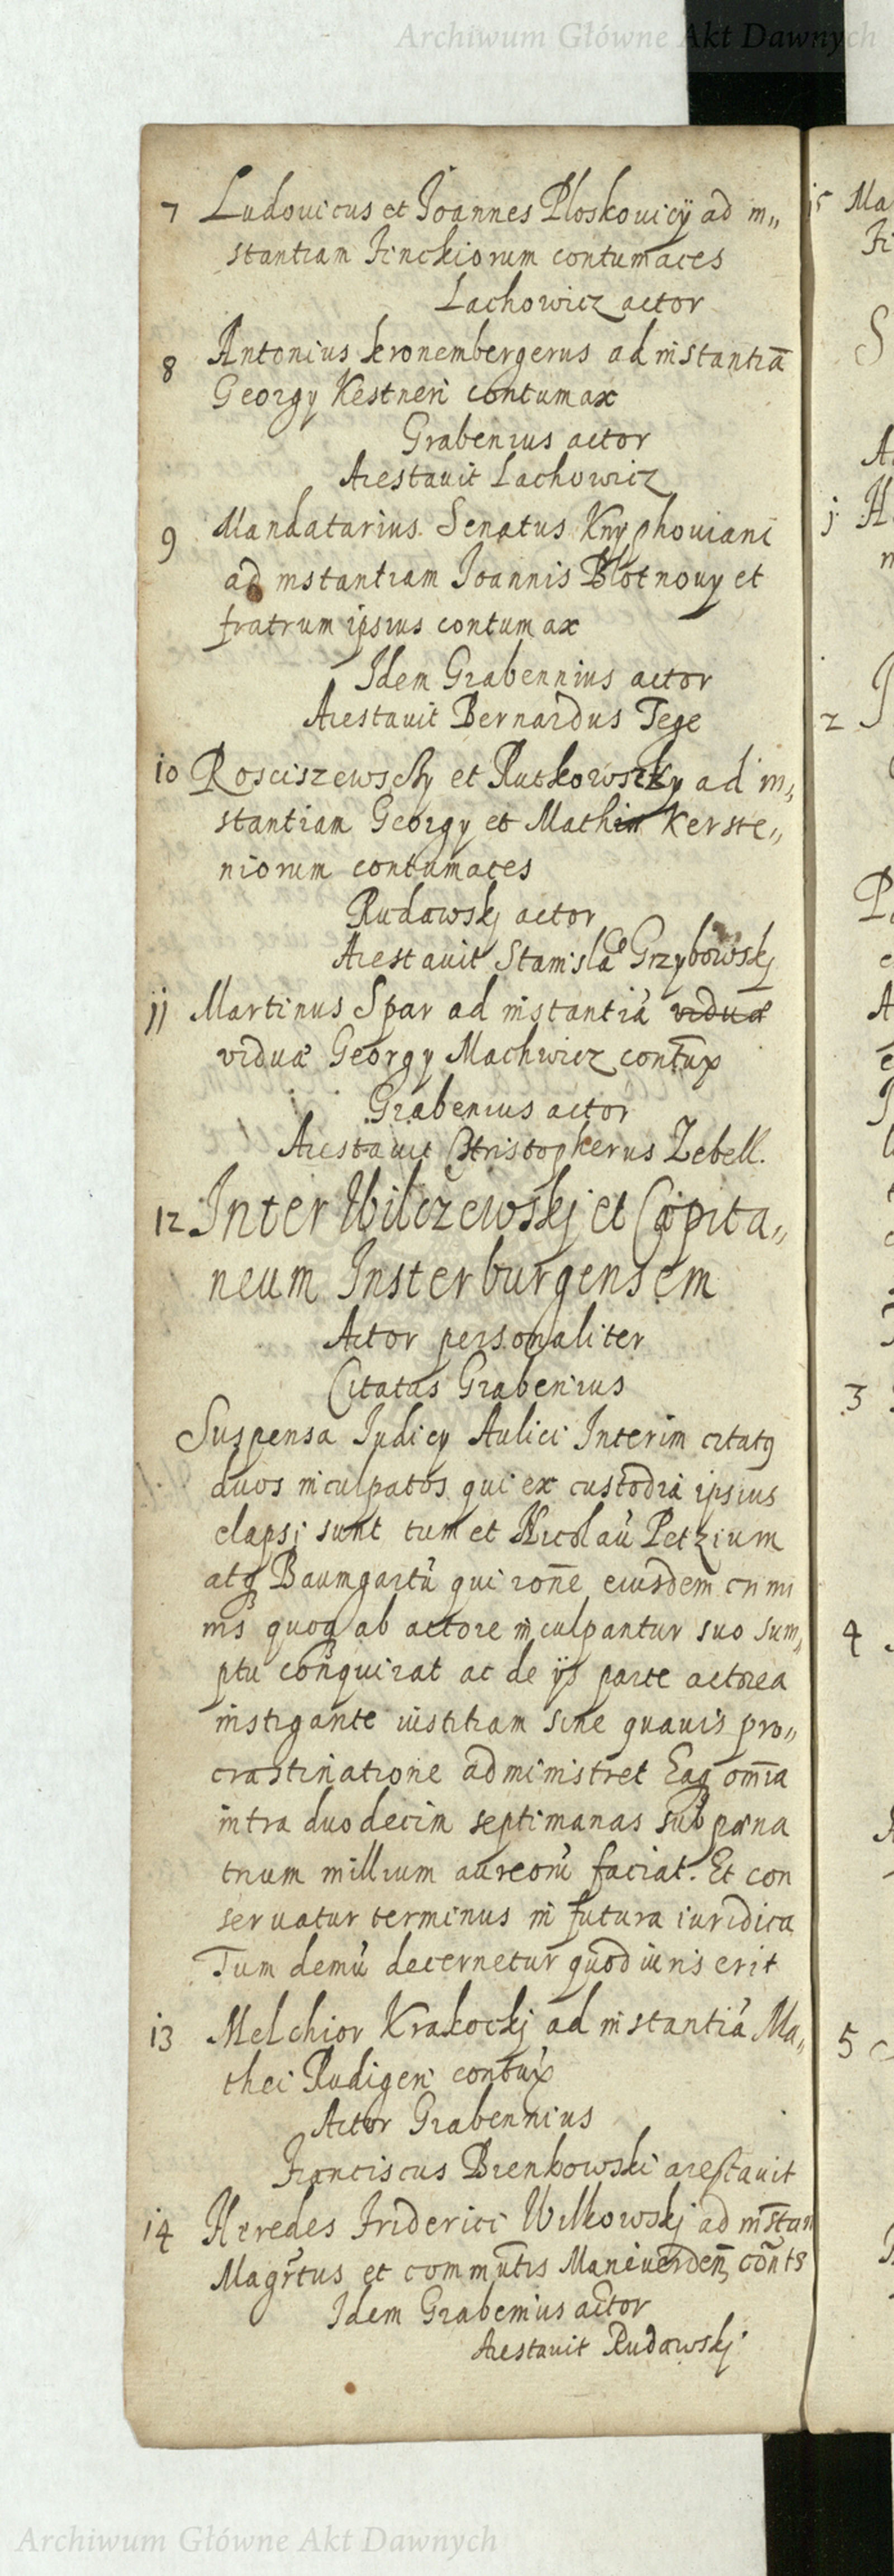 Archiwum Główne Akt Dawnych
7 Ludouicus et Joannes Ploskouicÿ ad in„
stantiam Finckiorum contumaces
Lachowicz actor
8 Antonius kronembergerus ad instantiā
Georgy Kestneri contumax
Grabenius actor
Arestauit Lachowicz
9 Mandatarius Senatus Knyphouiani
ad instantiam Joannis Blotnouy et
fratrum ipsius contumax
Idem Grabennius actor
Arestauit Bernardus Tege
10 Rosciszewsky et Rutkowsky ad in„
stantiam Georgy et Math Kerste„
niorum contumaces
Rudawskj actor
Arestauit Stanisla Grzybowskj
11 Martinus Spar ad instantiā viduæ
viduæ Georgy Machwicz contūx
Grabenius actor
Arestauit Christopherus Zebell.
12 Inter Wilczewskj et Capita„
neum Insterburgensem
Actor personaliter
Citatus Grabenius
Suspensa Judicy Aulici Interim citatꝫ
duos inculpatos qui ex custodia ipsius
elapsj sunt tum et Nicolaū Petzium
atqꝫ Baumgartū qui rōne eiusdem crimi
nis quoqꝫ ab actore inculpantur suo sum„
ptu conquirat ac de ijs parte actorea
instigante iustitiam sine quauis pro„
crastinatione administret Eaqꝫ omīa
intra duodecim septimanas sub pœna
trium millium aureorū faciat. Et con
seruatur terminus in futura iuridica
Tum demū decernetur quod iuris erit
13 Melchior Krakockj ad instantiā Ma„
thei Rudigeri contūx
Actor Grabennius
Franciscus Brenkowski arestauit
14 Heredes Friderici Wilkowskj ad instan
Magrtus et commutis Maniuerden contś
Idem Grabenius actor
Arestauit Rudawskj
Archiwum Główne Akt Dawnych